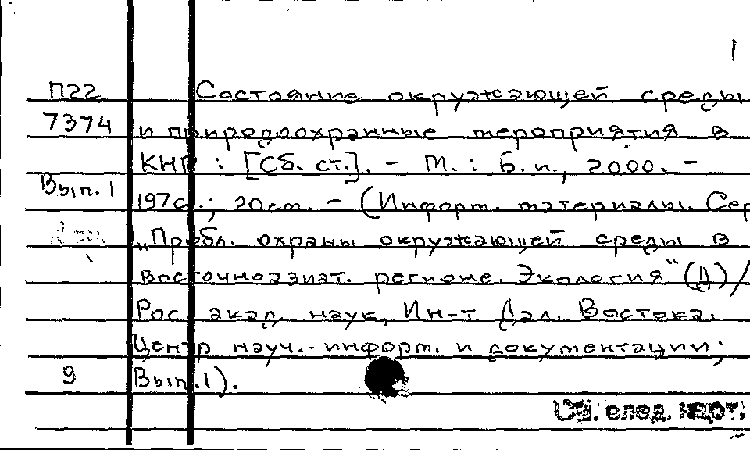 1
П22 Состояние окружающей среды
7374 и природоохранные мероприятия в
КНР : [Сб. ст.]. - М. : Б. и., 2000. -
Вып. 1
197с.; 20см. - (Информ. материалы. Сер
„Пробл. охраны окружающей среды в
восточноазиат. регионе. Экология" (Д) /
Рос. акад. наук, Ин-т Дал. Востока.
Центр науч. информ. и документации;
9 Вып. 1).
См. след. карт.